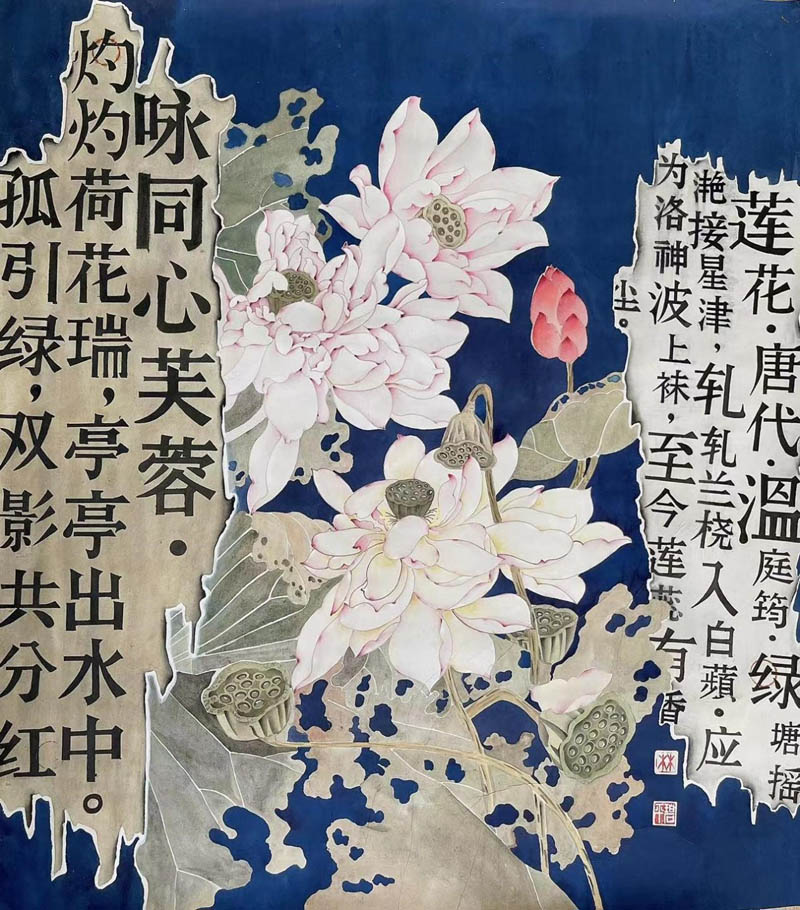 莲花·唐代·溫庭筠·绿塘摇
滟接星津，轧轧兰桡入白蘋·应
为洛神波上袜，至今莲蕊有香
尘。
咏同心芙蓉·
灼灼荷花瑞，亭亭出水中。
孤引绿，双影共分红
林